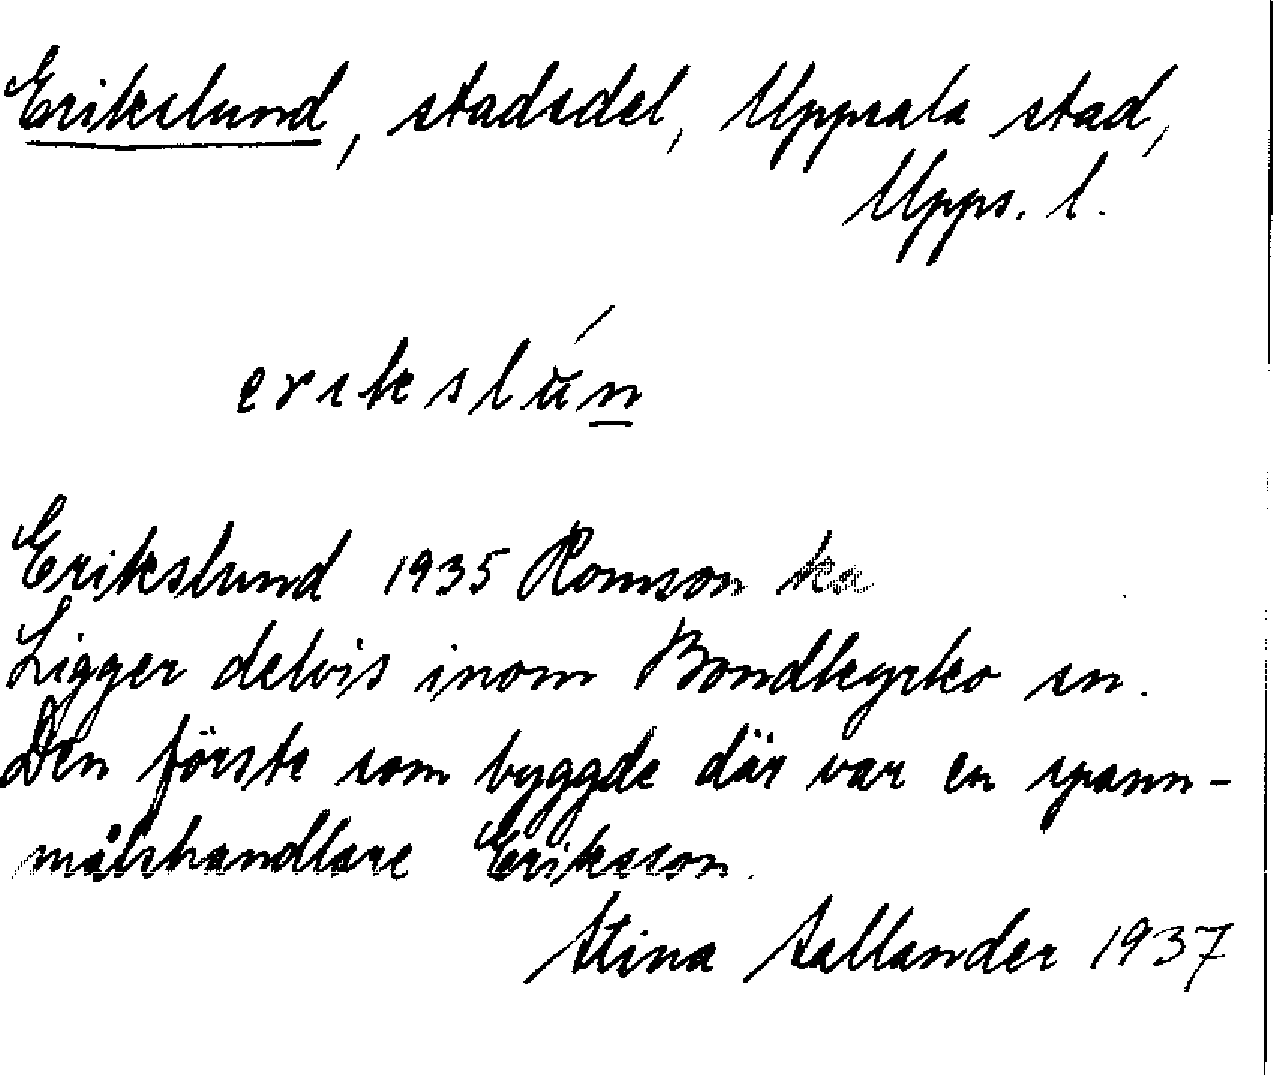 Erikslund, stadsdel, Uppsala stad,
Upps. l.
erikslún
Erikslund 1935 Romson ka
Ligger delvis inom Bondkyrko sn.
Den förste som byggde där var en spann-
målshandlare Eriksson.
Stina Sallander 1937